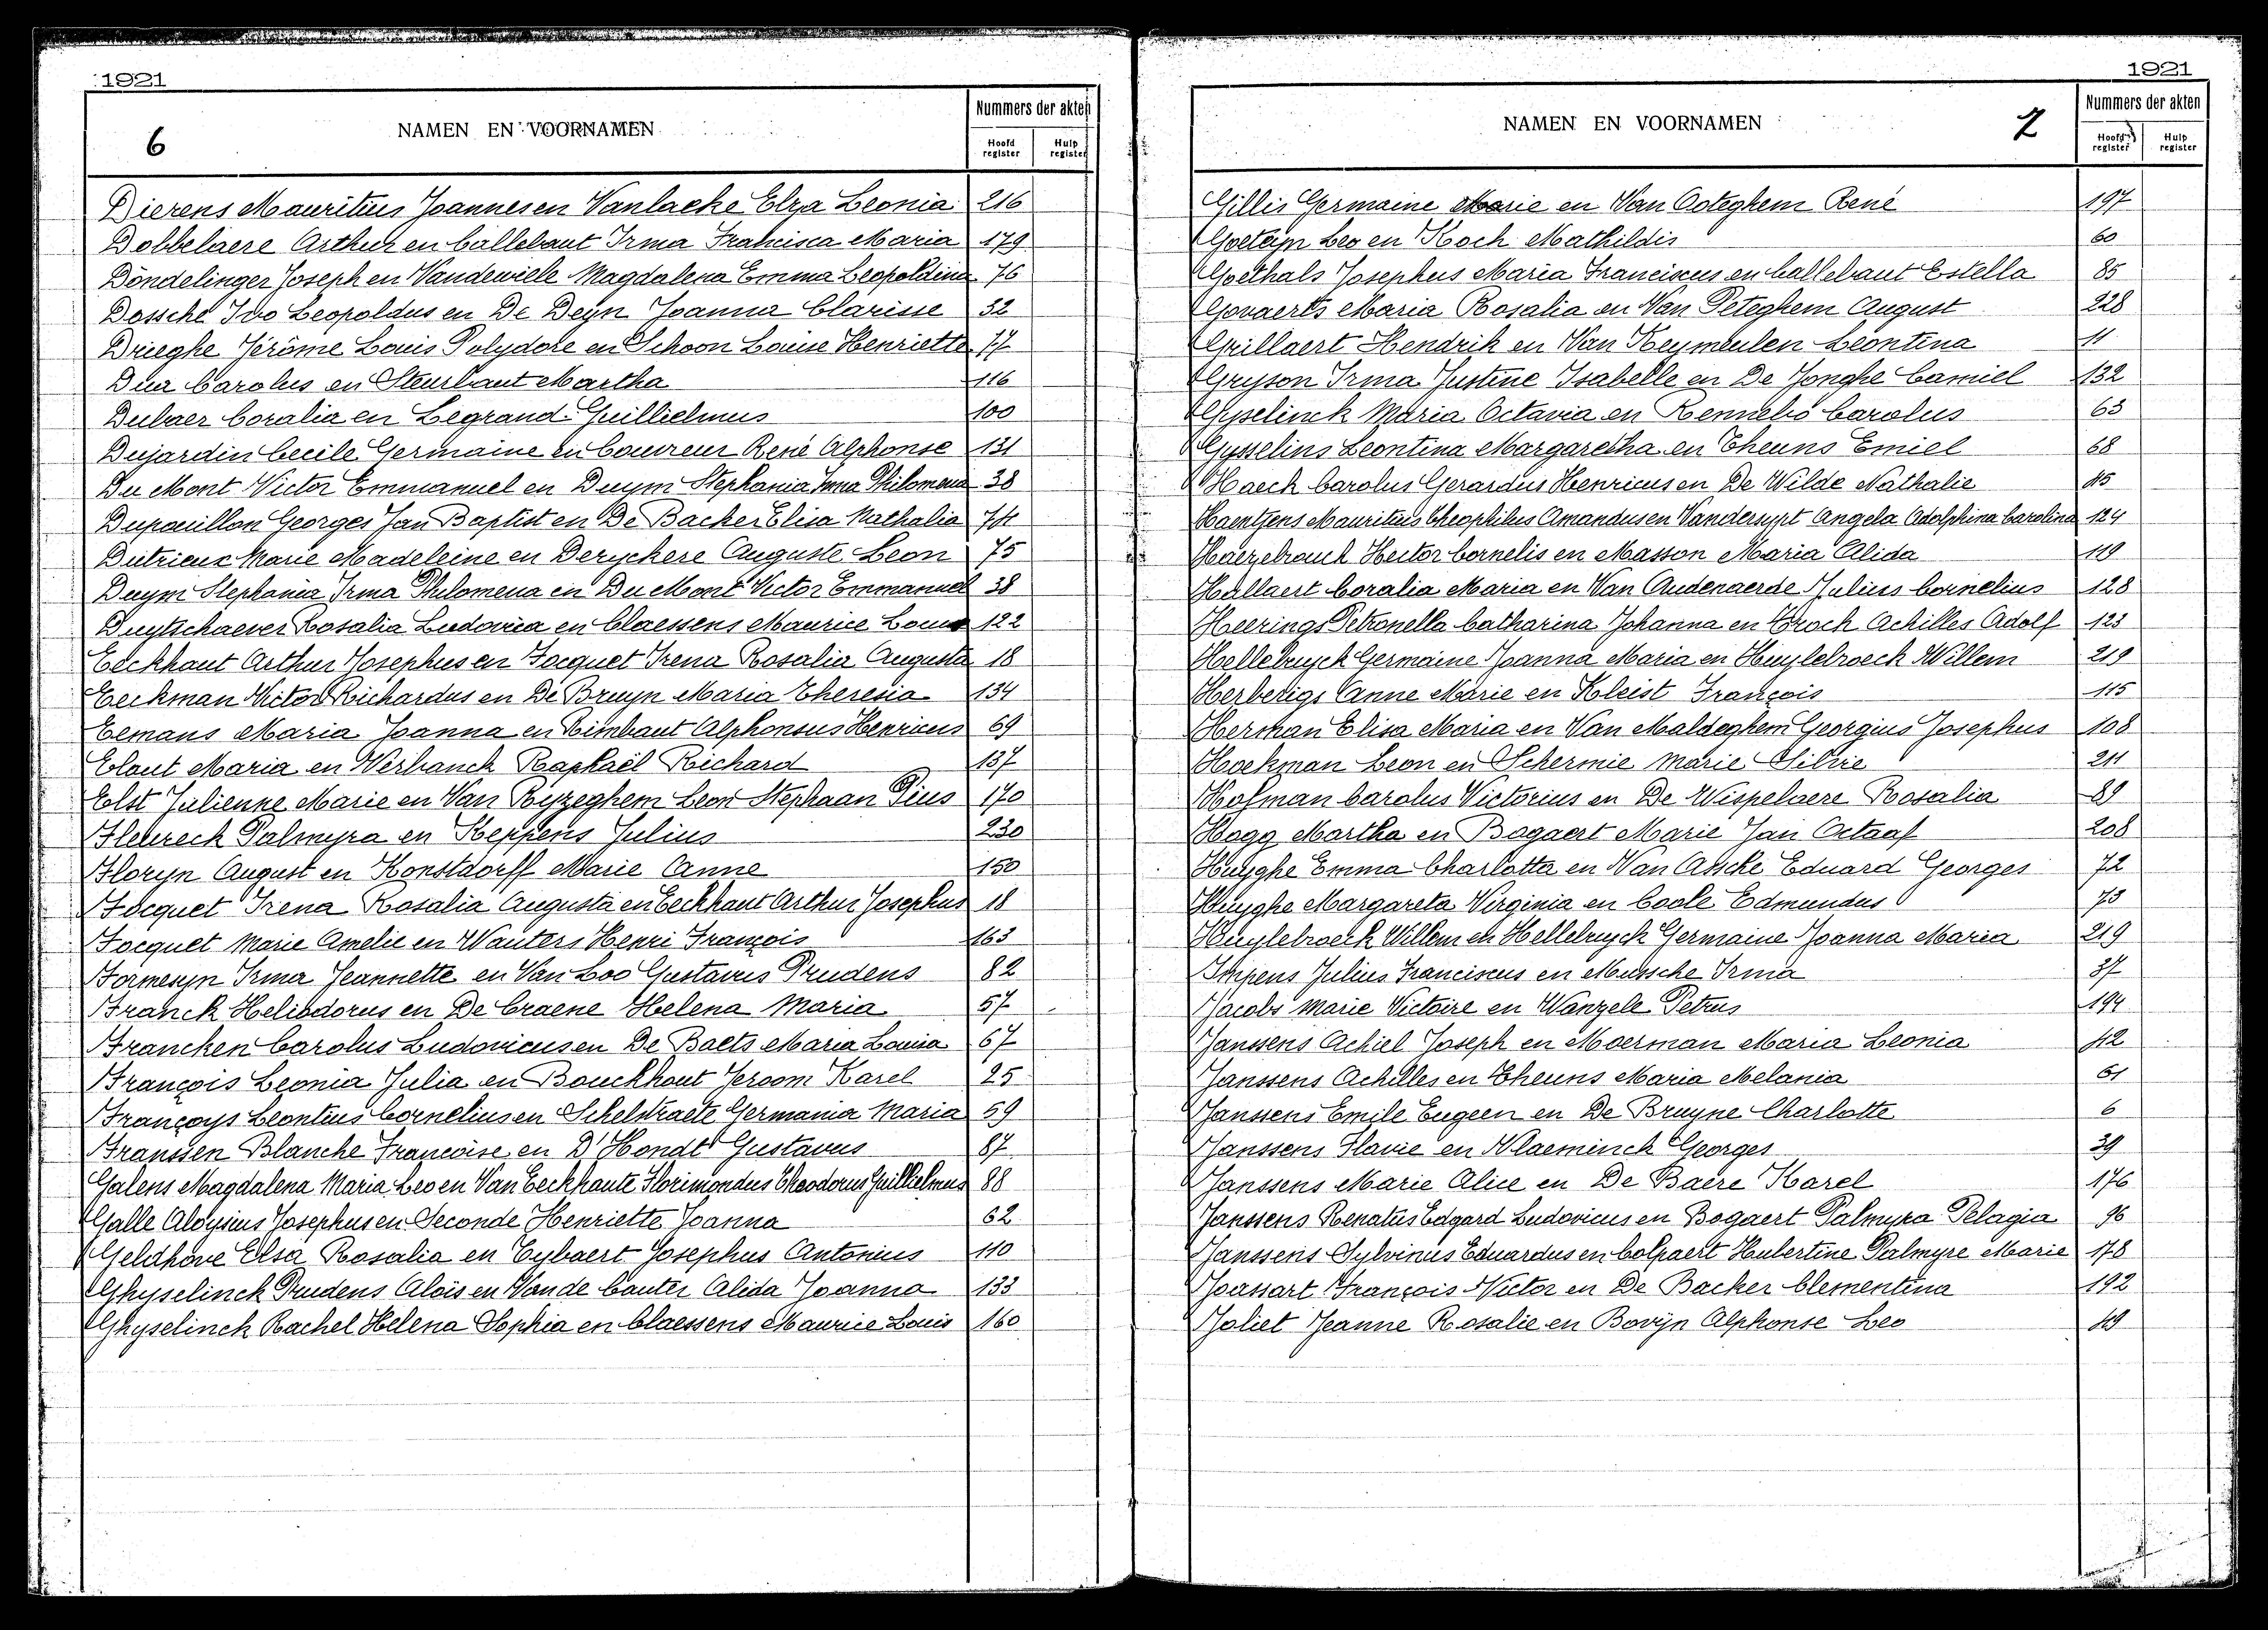 1921
6
NAMEN EN VOORNAMEN
Nummers der akten
Hoofd register
Hulp register
Dierens Mauritius Joannes en Vanlacke Elza Leonia 216
Dobbelaere Arthur en Callebaut Irma Francisca Maria 179
Dondelinger Joseph en Vandewiele Magdalena Emma Leopoldina 76
Dossche Ivo Leopoldus en De Deyn Joanna Clarisse 32
Drieghe Jérôme Louis Polydore en Schoon Louise Henriette 77
Dua Carolus en Steurbaut Martha 116
Dubaer Coralia en Legrand Guillielmus 100
Dujardin Cecile Germaine en Couvreur René Alphonse 131
Du Mont Victor Emmanuel en Duym Stephania Irma Philomena 38
Dupouillon Georges Jan Baptist en De Backer Elisa Nathalia 74
Dutrieux Marie Madeleine en Derychere Auguste Leon 75
Duym Stephania Irma Philomena en Du Mont Victor Emmanuel 38
Duytschaever Rosalia Ludovica en Claessens Maurice Louis 122
Eeckhaut Arthur Josephus en Focquet Irena Rosalia Augusta 18
Eeckman Victor Richardus en De Bruyn Maria Theresia 134
Eemans Maria Joanna en Rimbaut Alphonsus Henricus 69
Elaut Maria en Verhanck Raphaël Richard 137
Elst Julienne Marie en Van Ryzeghem Leon Stephaan Pius 170
Flewreck Palmyra en Keppens Julius 230
Floryn August en Konstdorff Marie Anne 150
Focquet Irena Rosalia Augusta en Eeckhaut Arthur Josephus 18
Focquet Marie Amelie en Wauters Henri François 163
Formesyn Irma Jeannette en Van Loo Gustavus Prudens 82
Franck Heliodorus en De Craene Helena Maria 57
Francken Carolus Ludovicus en De Baets Maria Louisa 67
François Leonia Julia en Bouckhout Jeroom Karel 25
Françoys Leontius Cornelius en Schelstraete Germania Maria 59
Franssen Blanche Françoise en D'Hondt Gustavus 87
Galens Magdalena Maria Leo en Van Eeckhaute Florimondus Theodorus Guillielmus 88
Galle Aloysius Josephus en Seconde Henriette Joanna 62
Geldhove Elsa Rosalia en Eybaert Josephus Antonius 110
Ghyselinck Prudens Aloïs en Vande Cauter Alida Joanna 133
Ghyselinck Rachel Helena Sophia en Claessens Maurice Louis 160
1921
NAMEN EN VOORNAMEN
7
Nummers der akten
Hoofd register
Hulp register
Gillis Germaine Marie en Van Ooteghem René 197
Goeteyn Leo en Koch Mathildis 60
Goethals Josephus Maria Franciscus en Callebaut Estella 85
Govaerts Maria Rosalia en Van Peteghem August 228
Grillaert Hendrik en Van Keymeulen Leontina 11
Gryson Irma Justine Isabelle en De Jonghe Camiel 132
Gyselinck Maria Octavia en Rennebo Carolus 63
Gysselins Leontina Margaretha en Theuns Emiel 68
Haeck Carolus Gerardus Henricus en De Wilde Nathalie 45
Haentjens Mauritius Theophilus Amandus en Vandersypt Angela Adolphina Carolina 124
Haezebrouck Hector Cornelis en Masson Maria Alida 119
Hallaert Coralia Maria en Van Oudenaerde Julius Cornelius 128
Heerings Petronella Catharina Johanna en Brock Achilles Adolf 123
Hellebuyck Germaine Joanna Maria en Huylebroeck Willem 219
Herberigs Anne Marie en Kleist François 115
Herman Elisa Maria en Van Maldeghem Georgius Josephus 108
Hoekman Leon en Schermie Marie Silvie 211
Hofman Carolus Victorius en De Wispelaere Rosalia 89
Hogg Martha en Bogaert Marie Jan Octaaf 208
Huyghe Emma Charlotta en Van Assche Eduard Georges 72
Huyghe Margareta Virginia en Coole Edmundus 73
Huylebroeck Willem en Hellebuyck Germaine Joanna Maria 219
Impens Julius Franciscus en Mussche Irma 37
Jacobs Marie Victoire en Wanzele Petrus 194
Janssens Achiel Joseph en Moerman Maria Leonia 42
Janssens Achilles en Theuns Maria Melania 61
Janssens Emile Eugeen en De Bruyne Charlotte 6
Janssens Flavie en Vlaeminck Georges 39
Janssens Marie Alice en De Baere Karel 176
Janssens Renatus Edgard Ludovicus en Bogaert Palmyra Pelagia 96
Janssens Sylvinus Eduardus en Colpaert Hubertine Palmyre Marie 178
Joassart François Victor en De Backer Clementina 192
Joliet Jeanne Rosalie en Bovijn Alphonse Leo 49